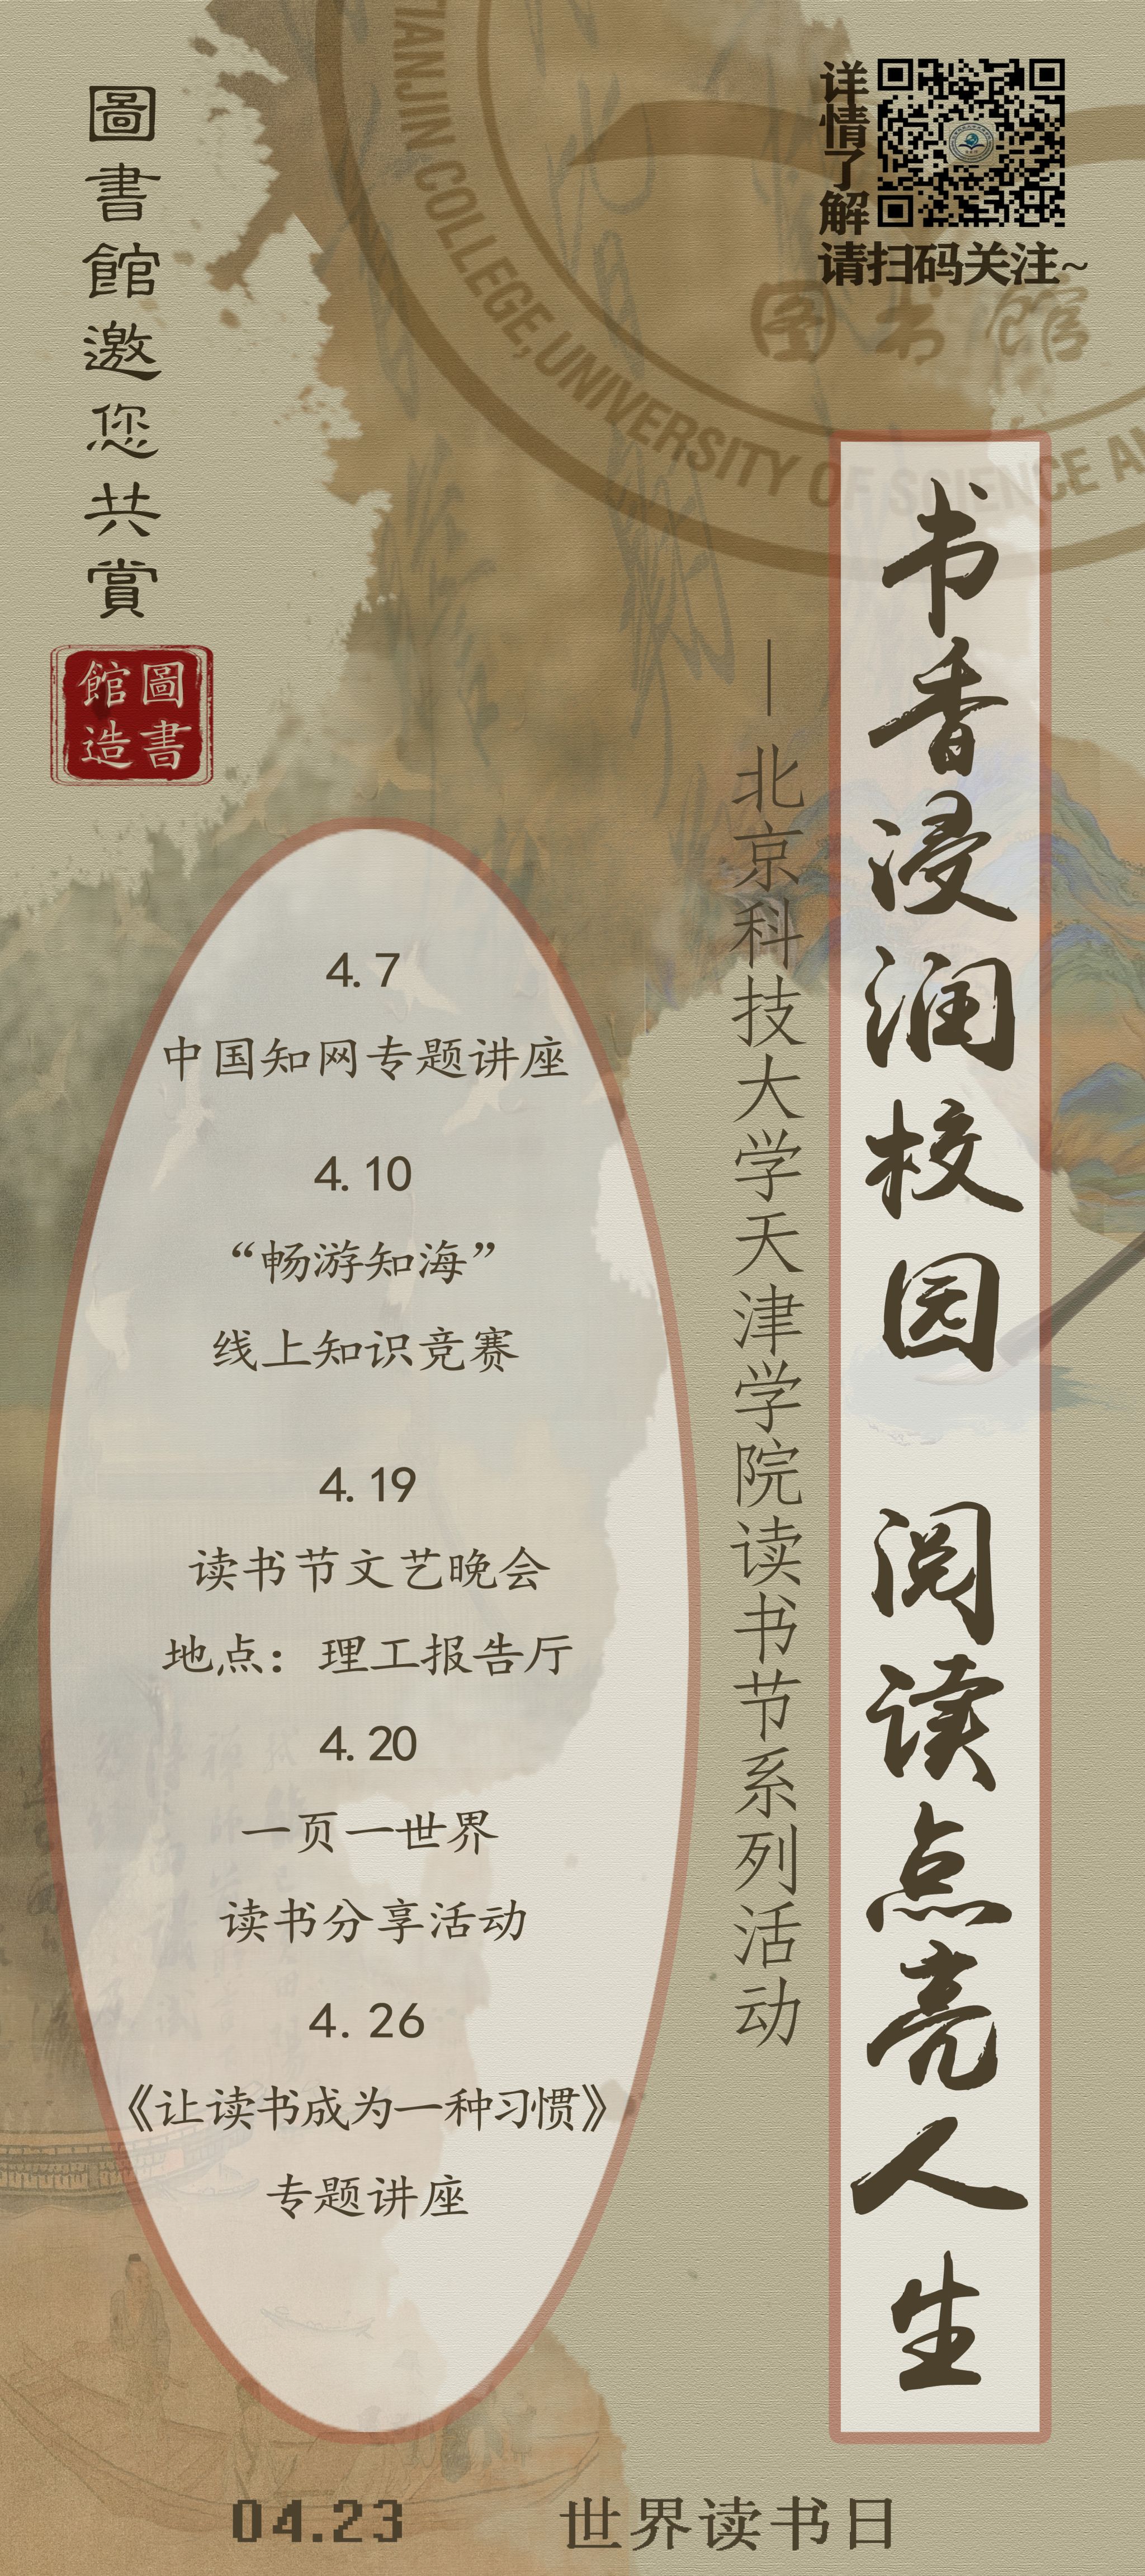 圖書館邀您共賞
圖書
館造
详情了解
请扫码关注~
图书馆
TIANJIN COLLEGE,UNIVERSITY OF SCIENCE
书香浸润校园 阅读点亮人生
—北京科技大学天津学院读书节系列活动
4.7
中国知网专题讲座
4.10
“畅游知海”
线上知识竞赛
4.19
读书节文艺晚会
地点：理工报告厅
4.20
一页一世界
读书分享活动
4.26
《让读书成为一种习惯》
专题讲座
04.23 世界读书日